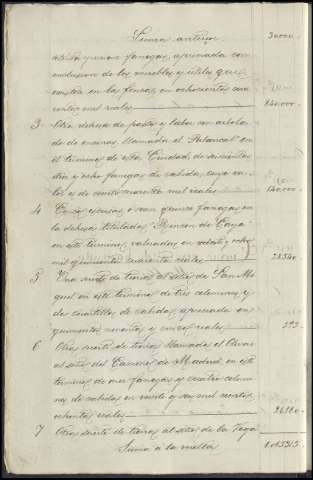 Suma anterior 30000.
fanegas, apreciada con
esclusion de los muebles y útiles que
en las fincas, en ochocientos cua
renta mil reales 840.000.
3 Otra dehesa de pasto y labor con arbola
do de encinas, llamada el
el término de esta Ciudad, de
dos y ocho fanegas de cabida, cuyo va
lor es de ciento cuarenta mil reales 140.000
4 fanegas en
la dehesa titulada "Rincon de Caya"
en este término, valuadas en veinte y ocho
mil quinientos cuarenta reales 28540.
5 Una suerte de tierra al sitio de San Mi
guel en este término de tres celemines y
dos cuartillos de cabida, apreciada en
quinientos noventa y cinco reales 595.
6 Otra suerte de tierra llamada el
al sitio del Camino de Madrid, en este
término de seis fanegas y cuatro celemi
nes de cabida en veinte y seis mil ciento
ochenta reales 26180.
7 Otra suerte de tierra al sitio de la Vega
Suma a la vuelta 1.065315